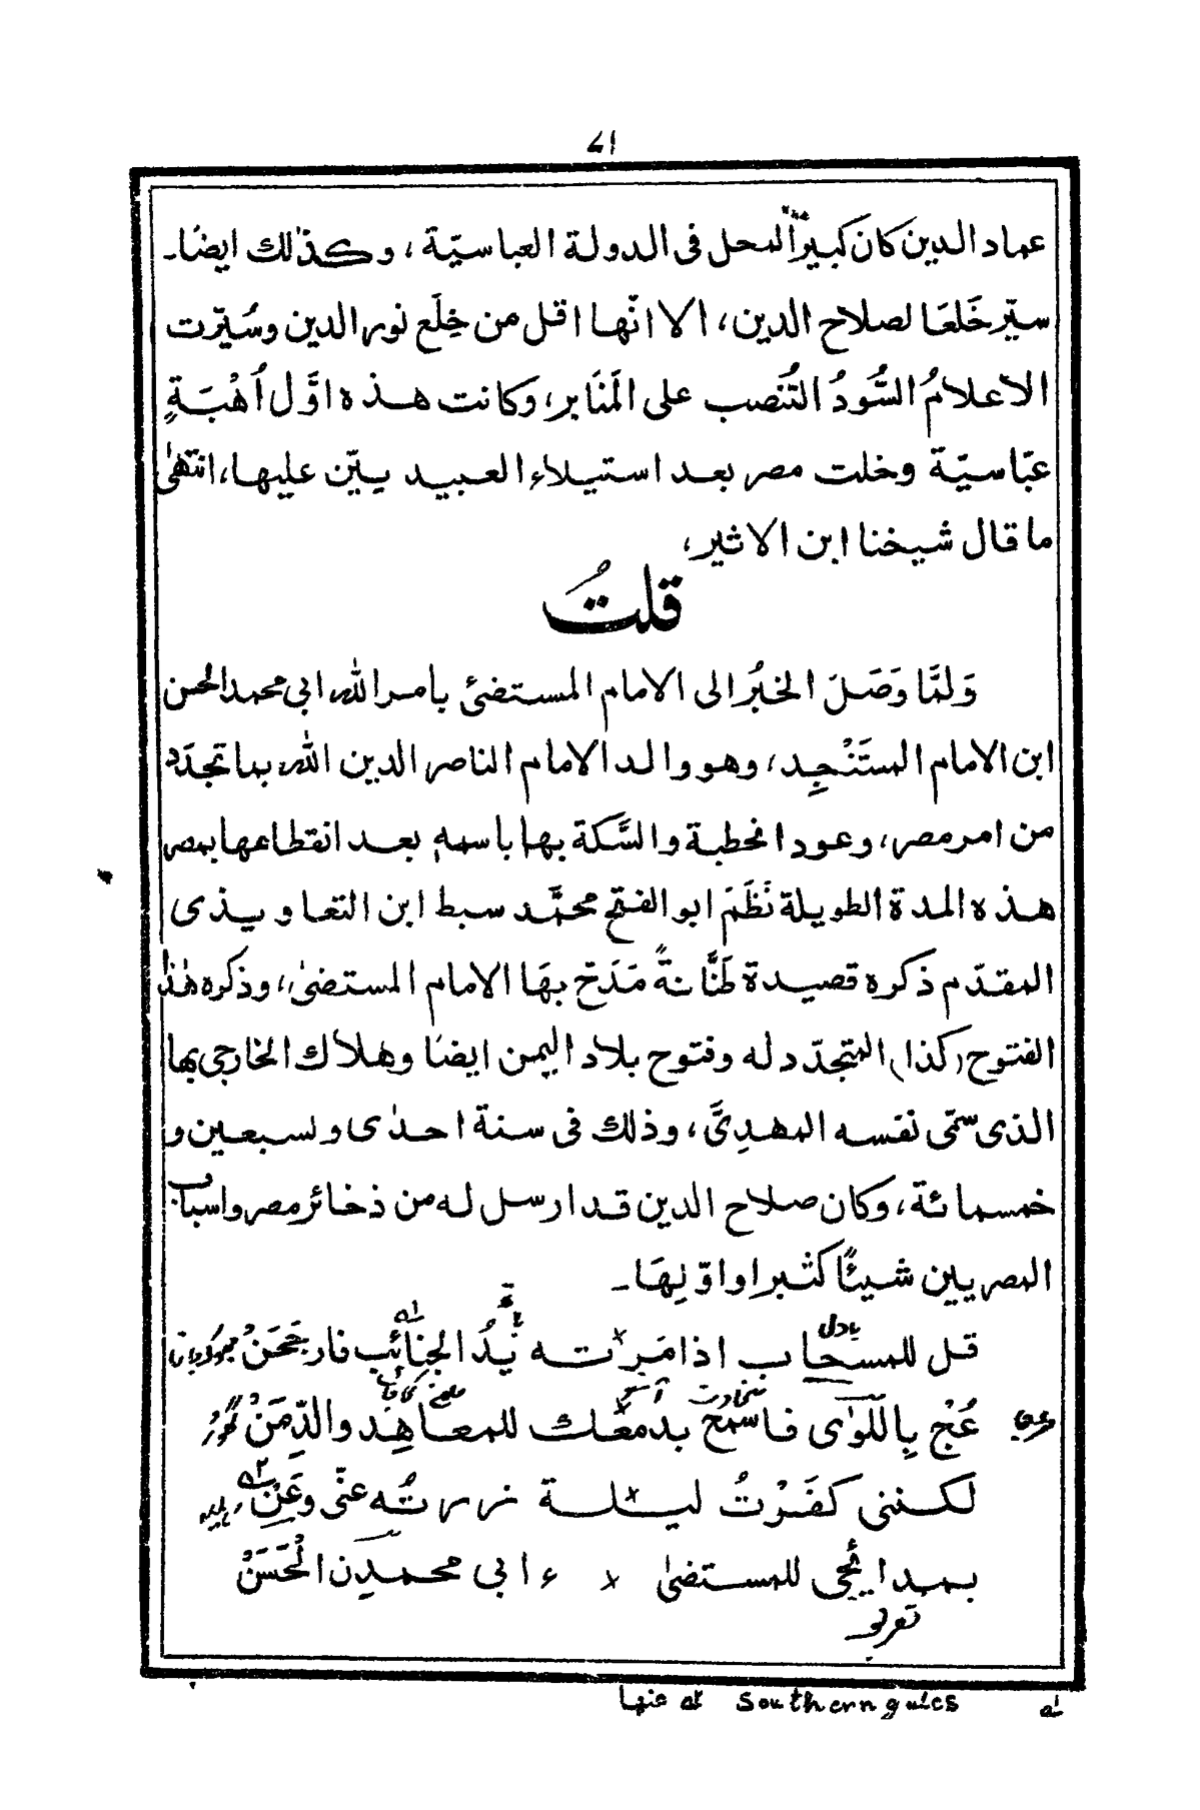 عماد الدين كان كبيراً المحل فى الدولة العباسيّة، وكذٰلك ايضًا۔
سيّر خَلَعَا لصلاح الدين، الا انّها اقل من خِلَع نور الدين وسُيّرت
الاعلامُ السُّودُ التُّنصب على المَنَابر، وكانت هذه اوَّل اُهْبَةٍ
عبّاسيّة وخلت مصر بعد استيلاء العبيد يـيّن عليها، انتهىٰ
ما قال شيخنا ابن الاثير،
قلتُ
وَلمَّا وَصَلَ الخبُر الى الامام المستضئ بامر الله ابى محمد الحسن
ابن الامام المستَنْجِد، وهو والد الامام الناصر الدين الله، بما تجدّد
من امر مصر، وعود انخطبة والسَّكة بها باسمه بعد انقطاعها بمصر
هذه المدة الطويلة نَظَمَ ابو الفتح محمَّد سبط ابن التعاويذى
المقدّم ذكره قصيدة طَنَّانةً مَدَحَ بهَا الامام المستضئ، وذكره هٰذا
الفتوح (كذا) المتجدّد له وفتوح بلاد اليمن ايضًا وهلاك الخارجى بها
الذى سمّى نفسه المهدِىَّ، وذلك فى سنة احدٰى وسبعين و
خمسمائة، وكان صلاح الدين قد ارسل له من ذخائر مصر واسباب
المصريين شيئًا كثيرا واوّلِهَا۔
قل للسحاب اذا مَرَته يَدُ الجنَائِب فارجَحَنْ
بادل
عُجْ بِاللّوٰى فاسمَح بدمعك للمعاهِد والدِّمَنْ
سخاوت
لكننى كفَرْتُ ليلة زرته عنّى وعَنْ
بمدائحى للمستضئ ء ابى محمدِن الْحَسَنْ
منها at Southern